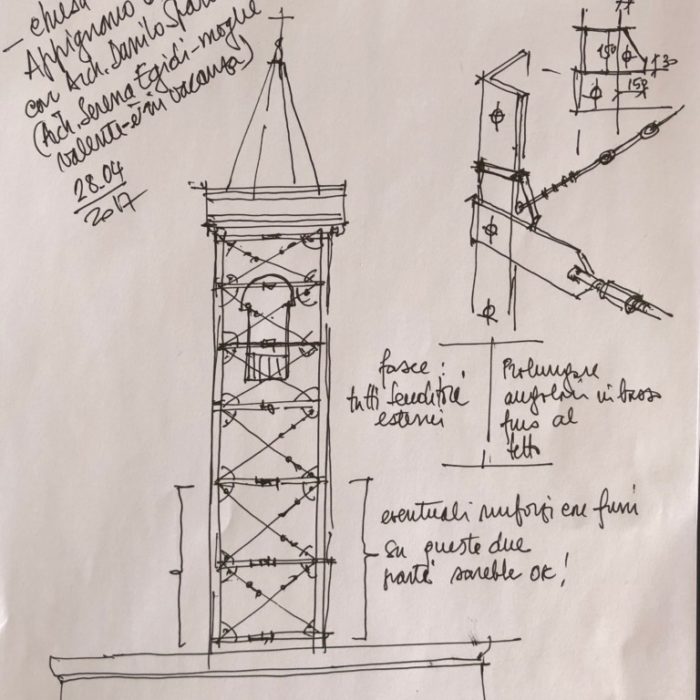 – chiesa
Appignano
con Arch. Danilo
(Arch. Serena Egidi-moglie
Valente-è in vacanza)
28.04
2017
150
130
150
fasce:
tutti tenditori
esterni
Prolungare
angolari in basso
fino al
tetto
eventuali rinforzi con funi
su queste due
parti sarebbe OK!